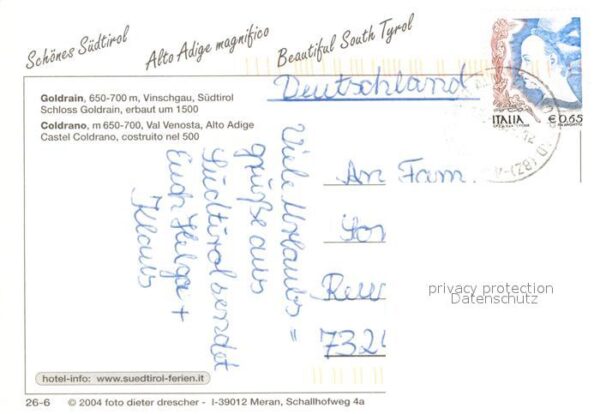 Schönes Südtirol
Alto Adige magnifico
Beautiful South Tyrol
Goldrain, 650-700 m, Vinschgau, Südtirol
Schloss Goldrain, erbaut um 1500
Coldrano, m 650-700, Val Venosta, Alto Adige
Castel Coldrano, costruito nel 500
Viele Urlaubs=
grüße aus
Südtirol sendet
Euch Helga +
Klaus
Deutschland
ITALIA
€ 0,65
(BZ)
An Fam.
Reu
7324
privacy protection
Datenschutz
hotel-info: www.suedtirol-ferien.it
26-6 © 2004 foto dieter drescher - I-39012 Meran, Schallhofweg 4a